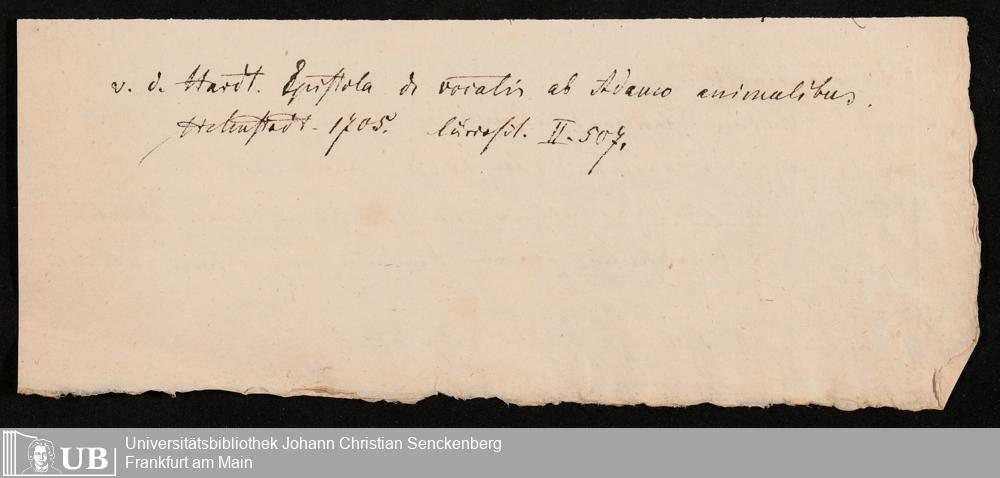 v. d. Hardt. Epistola de vocatis ab Adamo animalibus.
Helmstadt. 1705. Curiosit. II. 507.
UB
Universitätsbibliothek Johann Christian Senckenberg
Frankfurt am Main